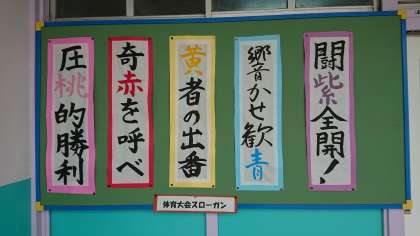 闘紫全開!
響かせ歓青
黄者の出番
奇赤を呼べ
圧桃的勝利
体育大会スローガン